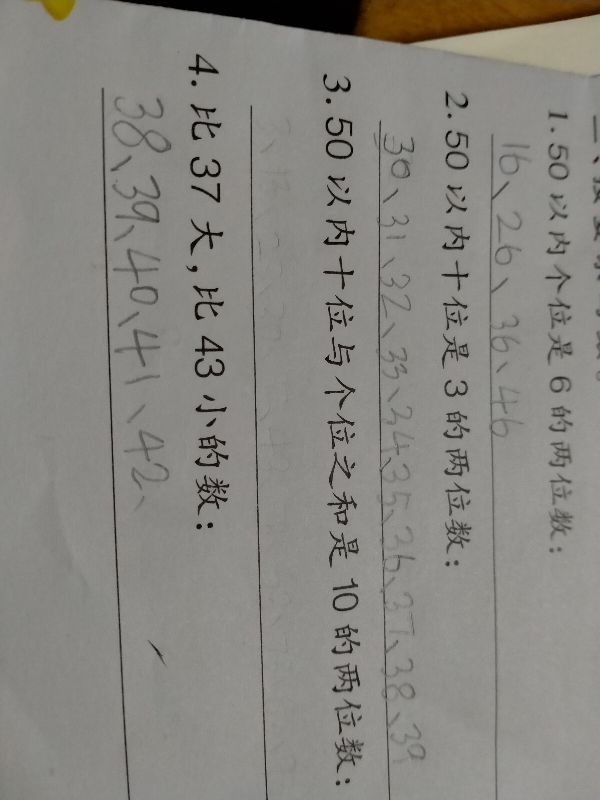 1.50以内个位是6的两位数：
16、26、36、46
2.50以内十位是3的两位数：
30、31、32、33、34、35、36、37、38、39
3.50以内十位与个位之和是10的两位数：
4.比37大，比43小的数：
38、39、40、41、42、